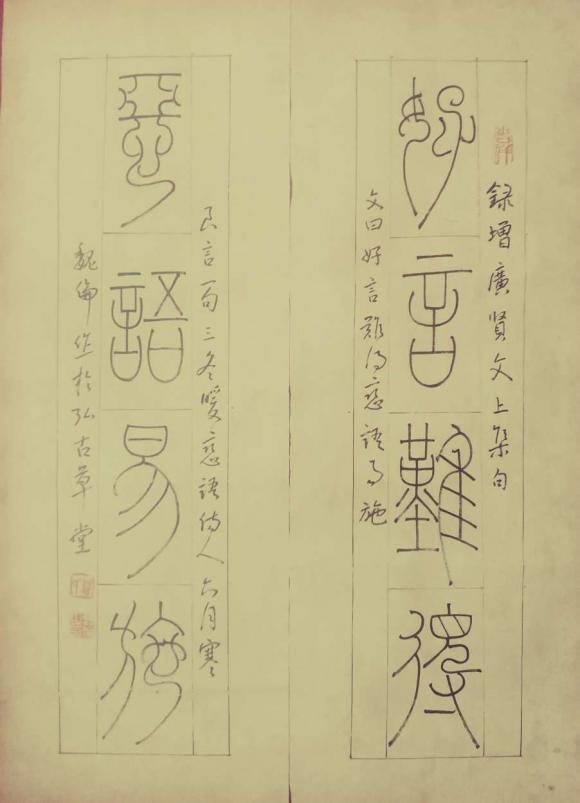 録增廣賢文上集句
好言難得
文曰好言難得惡語易施
良言一句三冬暖惡語傷人六月寒
惡語易施
魏倫作於弘古草堂